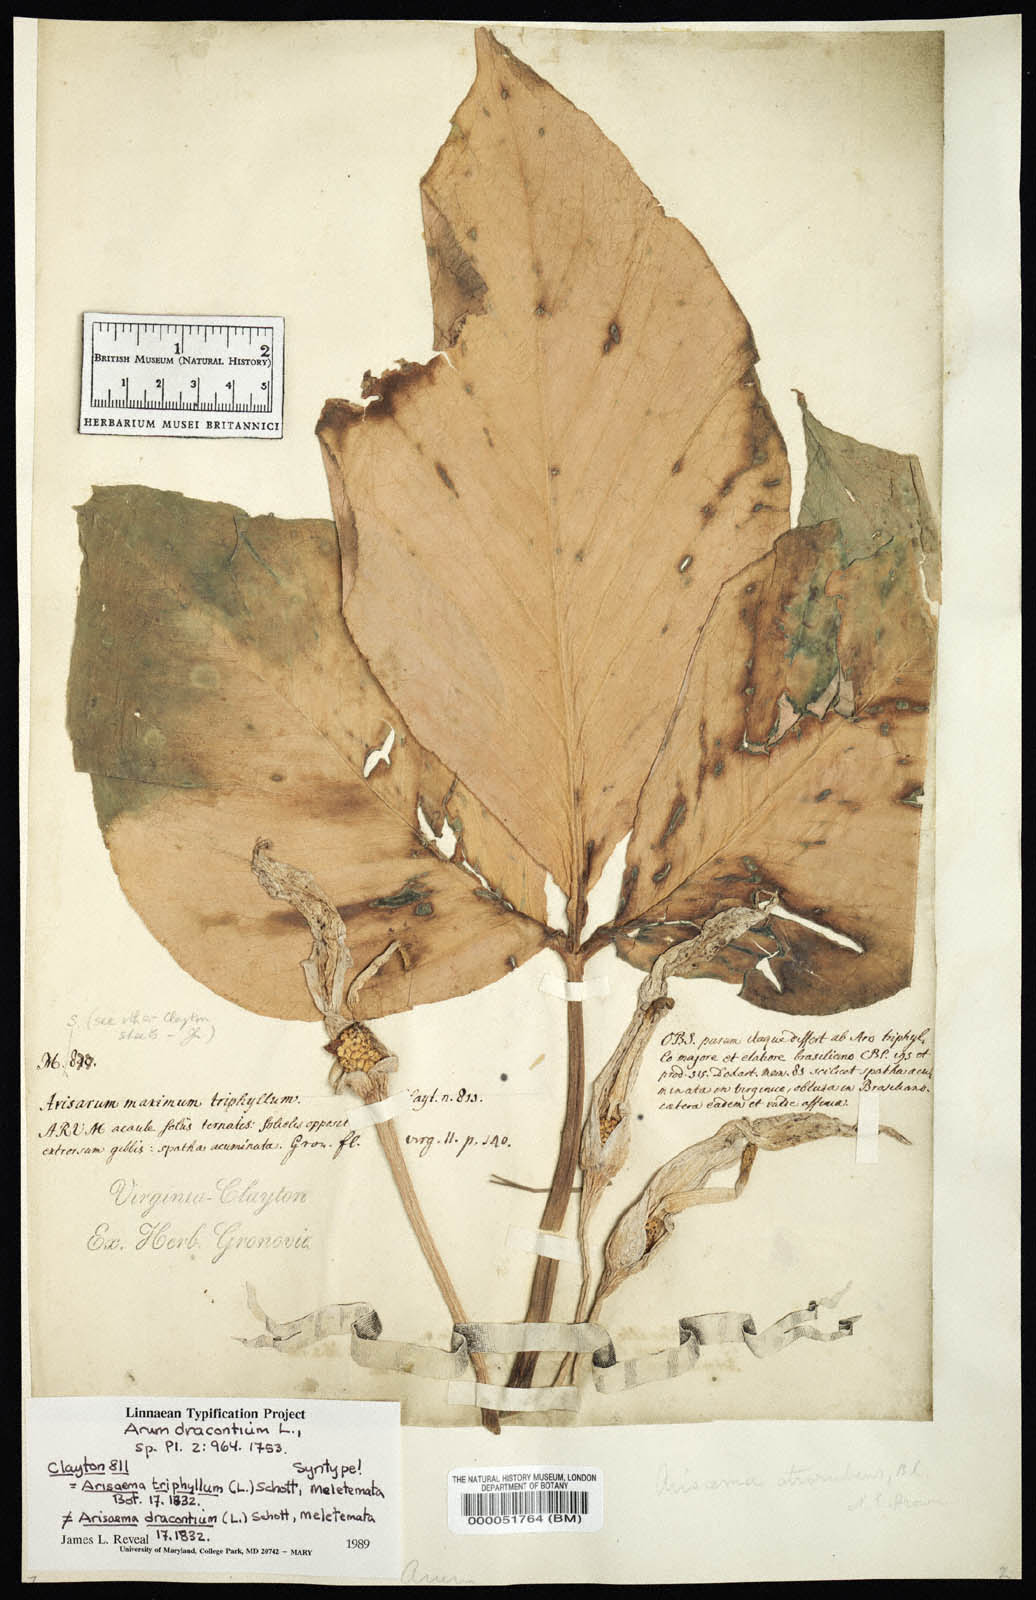 1 2
BRITISH MUSEUM (NATURAL HISTORY)
1 2 3 4 5
HERBARIUM MUSEI BRITANNICI
S. (see other Clayton
sheets -
Arisarum maximum triphyllum.
ARUM acaule foliis ternatis: foliolis
: spatha acuminata. Gron. fl.
Clayt. n. 811.
virg. II. p. 140.
OBS. parum itaque differt ab Aro triphyl
lo majore et elatiore brasiliano CBP. 195 et
prod. Dodart. mem. 81 scilicet spatha acu
minata in Virginica, obtusa in Brasiliano.
catera eadem et valde affinia.
Virginia-Clayton
Ex. Herb. Gronovii
Linnaean Typification Project
Arum dracontium L.,
Sp. Pl. 2: 964. 1753.
Clayton 811 Syntype!
= Arisaema triphyllum (L.) Schott, Meletemata
Bot. 17. 1832.
≠ Arisaema dracontium (L.) Schott, Meletemata
17. 1832.
James L. Reveal 1989
University of Maryland, College Park, MD 20742 – MARY
THE NATURAL HISTORY MUSEUM, LONDON
DEPARTMENT OF BOTANY
000051764 (BM)
Arisaema atrorubens, Bl.
N. E. Brown
Arum